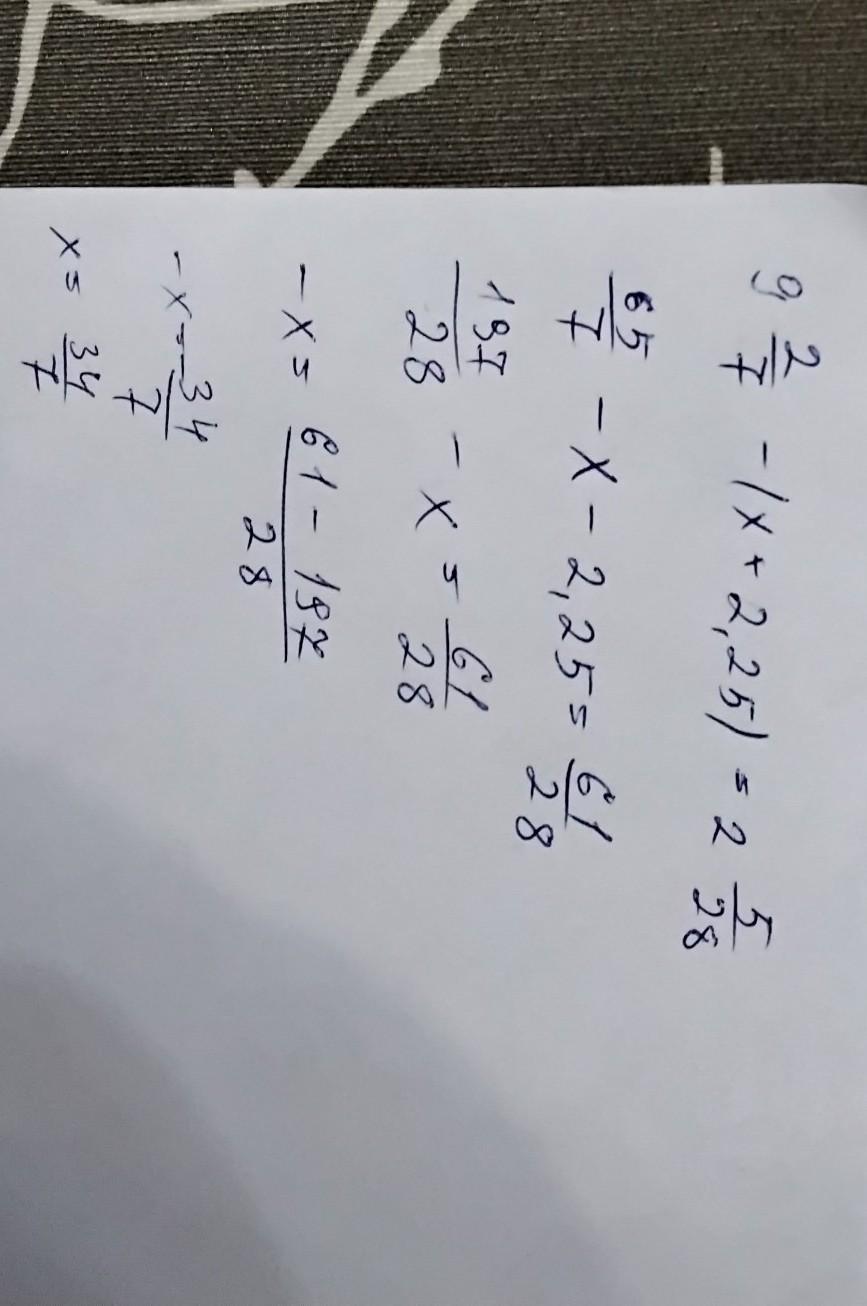 9 2/7 - (x + 2,25) = 2 5/28
65/7 - x - 2,25 = 61/28
197/28 - x = 61/28
-x = (61 - 197)/28
-x = -34/7
x = 34/7